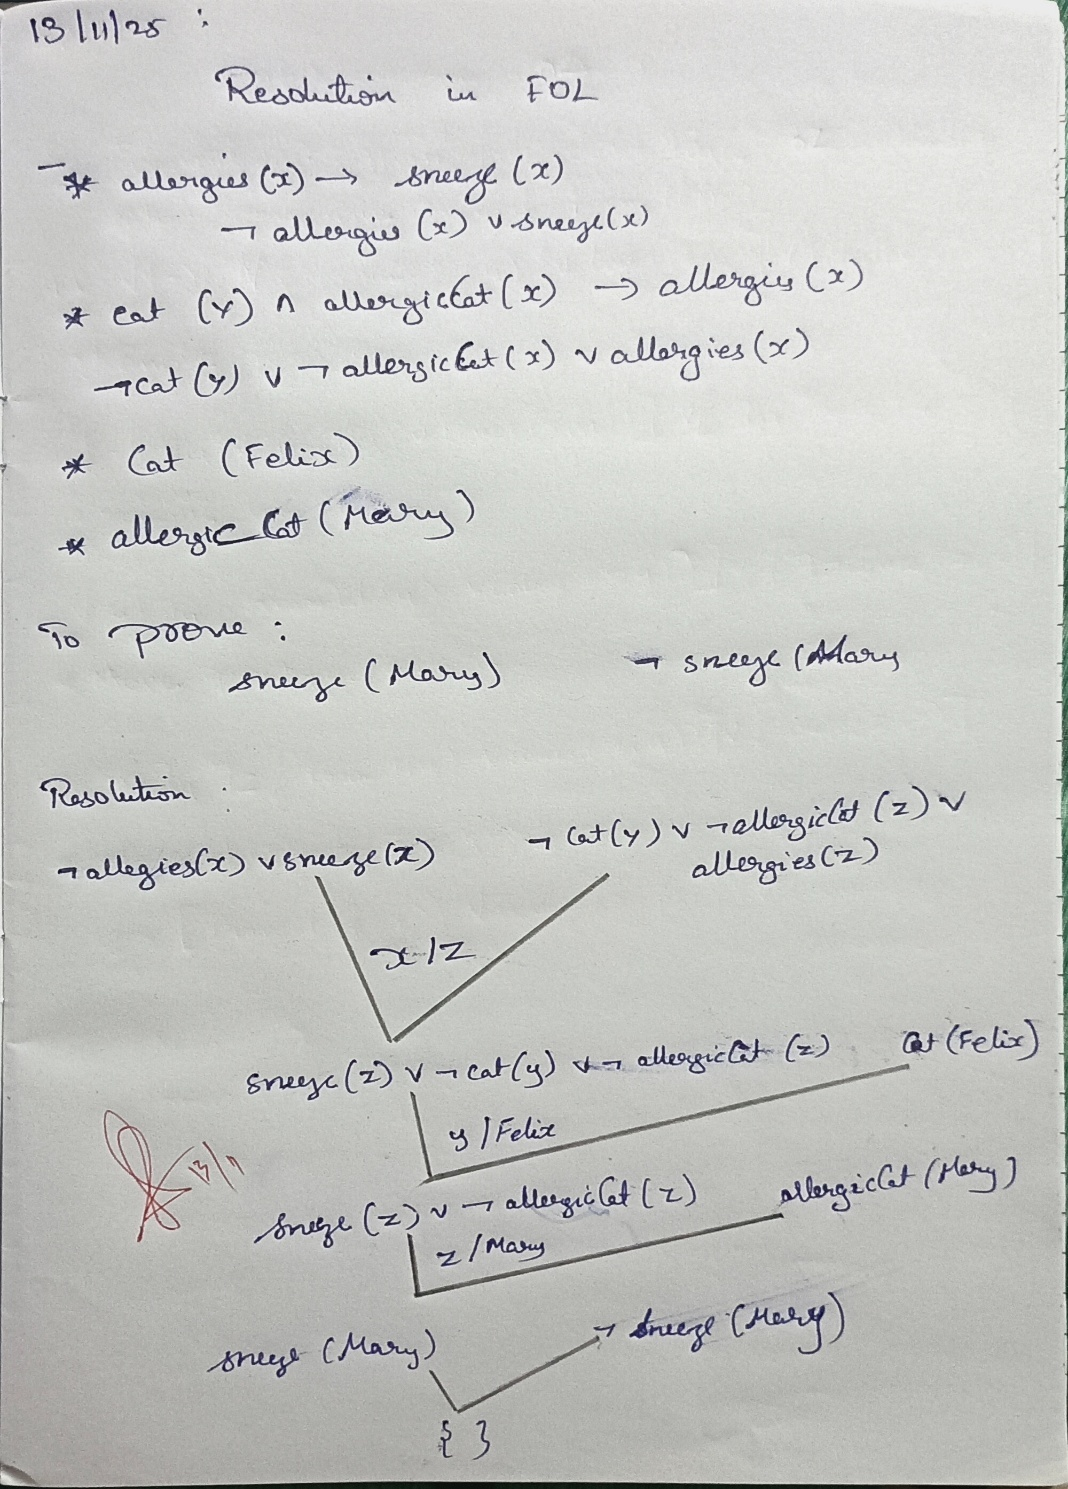 13/11/25 :
Resolution in FOL
* allergies (x) → sneeze (x)
¬ allergies (x) ∨ sneeze(x)
* cat (y) ∧ allergicCat (x) → allergies (x)
¬cat (y) ∨ ¬ allergicCat (x) ∨ allergies (x)
* Cat (Felix)
* allergic Cat (Mary)
To prove :
sneeze (Mary) ¬ sneeze (Mary
Resolution :
¬ allegies(x) ∨ sneeze(x) ¬ Cat(y) ∨ ¬allergicCat (z) ∨
allergies(z)
x/z
sneeze (z) ∨ ¬ cat(y) ∨ ¬ allergicCat (z) Cat (Felix)
y / Felix
13/11
sneeze (z) ∨ ¬ allergicCat (z) allergicCat (Mary)
z / Mary
sneeze (Mary) ¬ sneeze (Mary)
{ }